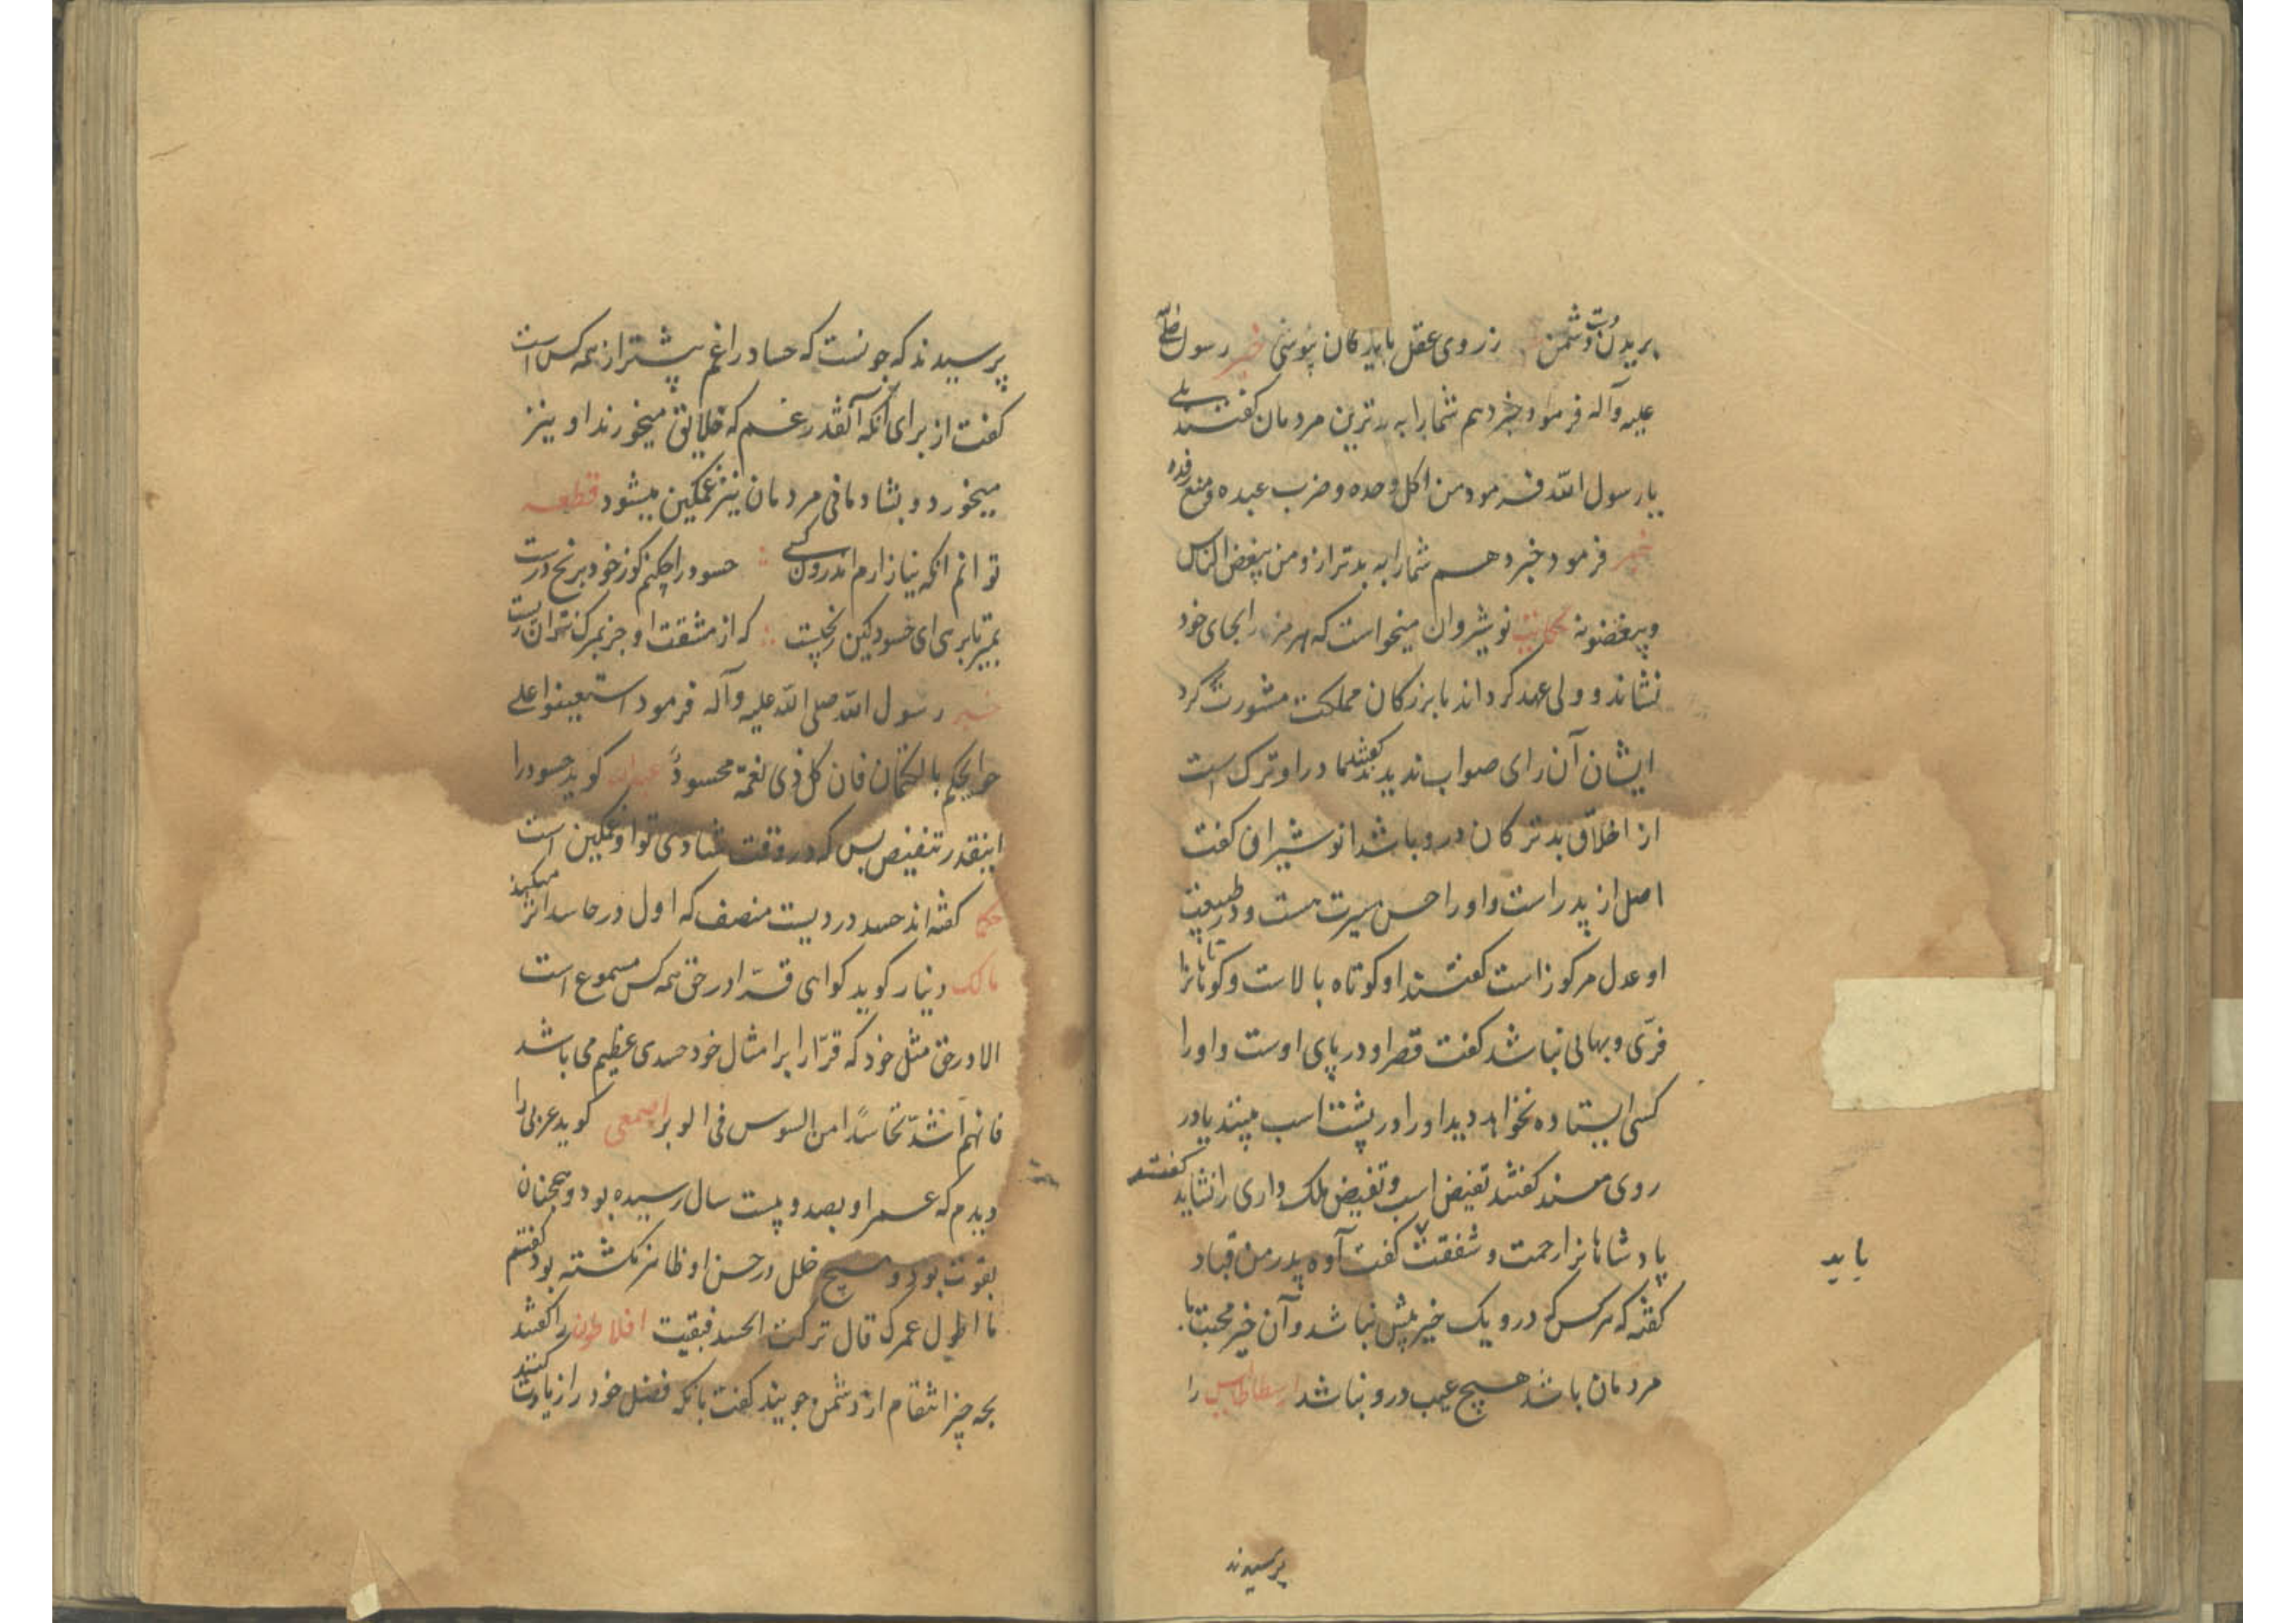 بریدن دوست و دشمن ز روی عقل باید کان نپوشی خبر رسول صلی الله
علیه وآله فرمود خبر دهم شما را به بدترین مردمان گفتند بلی
یا رسول الله فرمود من اکل وحده و ضرب عبده و منع رفده
خبر فرمود خبر دهم شما را به بدتر ازو من یبغض الناس
ویبغضونه حکایت نوشیروان میخواست که هرمز را بجای خود
نشاند و ولی عهد گرداند با بزرکان مملکت مشورت کرد
ایشان آن رای صواب ندیدند گفتند مادر او ترک است
از اخلاق بد ترکان درو باشد انوشیروان کفت
اصل از پدر است و او را حسن سیرت هست و در طبیعت
او عدل مرکوز است کفتند او کوتاه بالاست و کوتاهانرا
فری و بهائی نباشد کفت قصر او در پای اوست و او را
کسی ایستاده نخواهد دید او را در پشت اسب بینند یا در
روی مسند کفتند تغیض اسب و تغیض ملک داری را نشاید کفتند
پادشاهانرا رحمت و شفقت کفت آوه پدر من قباد
باید
کفته که هرکس که درو یک خیر بیش نباشد و آن خیر محبت با
مردمان باشد هیچ عیب درو نباشد ارسطاطالیس را
پرسیدند
پرسیدند که چونست که حساد را غم بیشتر از همه کس است
کفت از برای آنکه آنقدر غم که خلایق میخورند او نیز
میخورد و بشادمانی مردمان نیز غمکین میشود قطعه
توانم آنکه نیازارم اندرون کسی حسود را چکنم کو ز خود برنج درست
بمیر تا برهی ای حسود کین رنجیست که از مشقت او جز بمرک نتوان رست
خبر رسول الله صلی الله علیه وآله فرمود استعینوا علی
حوایجکم بالکتمان فان کل ذی نعمة محسودٌ عبدالله کوید حسود را
اینقدر تنغیص بس که در وقت شادی تو او غمکین است
حکما کفته اند حسد دردیست منصف که اول در حاسد اثر میکند
مالک دینار کوید کواهی قرّا در حق همه کس مسموع است
الا در حق مثل خود که قرّا را بر امثال خود حسدی عظیم می باشد
فانهم اشدّ تحاسدًا من السوس فی الوبر اصمعی کوید عربی را
دیدم که عمر او بصد و بیست سال رسیده بود و همچنان
بقوت بود و هیچ خلل در حسن او ظاهر نکشته بود کفتم
ما اطول عمرک قال ترکت الحسد فبقیت افلاطون را کفتند
بچه چیز انتقام از دشمن جویند کفت بانکه فضل خود را زیادت کنند